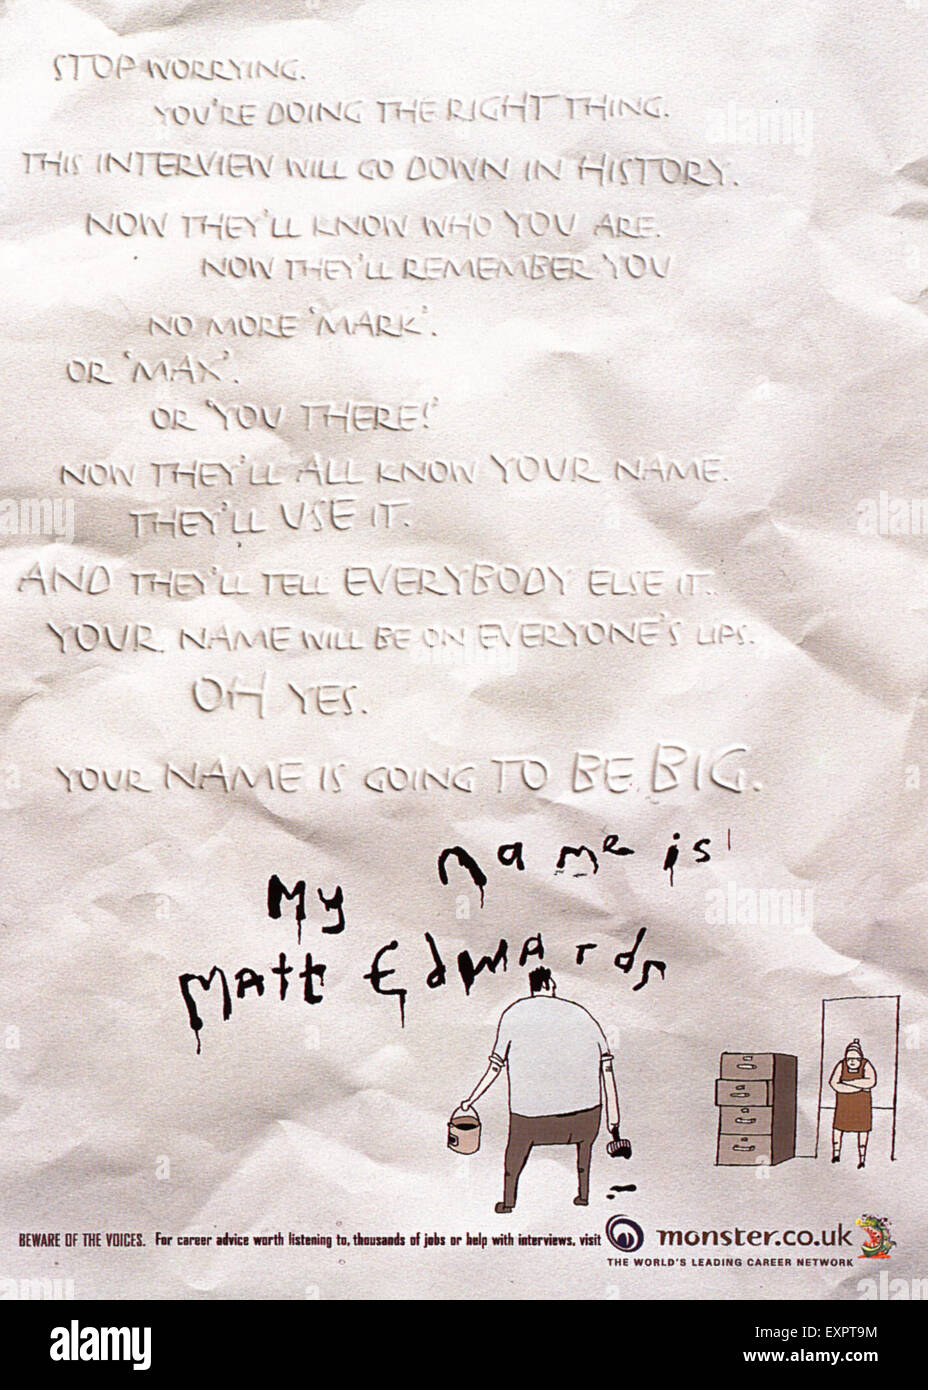 STOP WORRYING.
YOU'RE DOING THE RIGHT THING.
THIS INTERVIEW WILL GO DOWN IN HISTORY.
NOW THEY'LL KNOW WHO YOU ARE.
NOW THEY'LL REMEMBER YOU
NO MORE 'MARK'.
OR 'MAX'.
OR 'YOU THERE!'
NOW THEY'LL ALL KNOW YOUR NAME.
THEY'LL USE IT.
AND THEY'LL TELL EVERYBODY ELSE IT.
YOUR NAME WILL BE ON EVERYONE'S LIPS.
OH YES.
YOUR NAME IS GOING TO BE BIG.
My name is
Matt Edwards
BEWARE OF THE VOICES. For career advice worth listening to, thousands of jobs or help with interviews, visit monster.co.uk
THE WORLD'S LEADING CAREER NETWORK
alamy
alamy
alamy
alamy
alamy
Image ID: EXPT9M
www.alamy.com